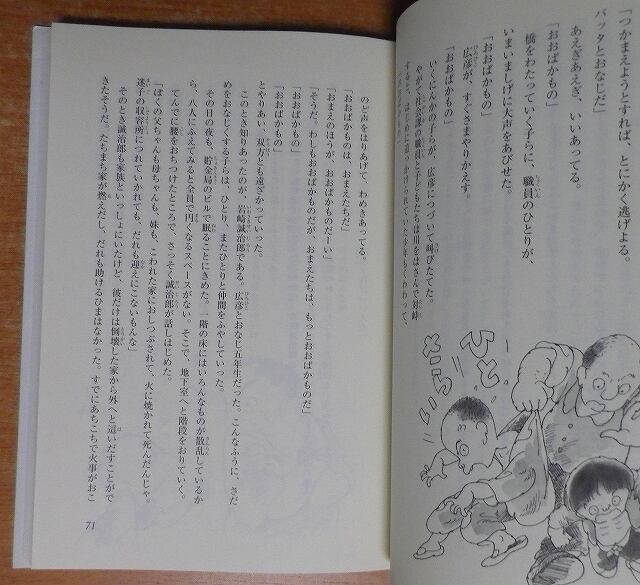 「つかまえようとすれば、とにかく逃げよる。
バッタとおなじだ」
あえぎあえぎ、いいあってる。
「おおばかもの」
橋をわたっていく子らに、職員のひとりが、
いまいましげに大声をあびせた。
「おおばかもの」
広彦が、すぐさまやりかえす。
「おおばかもの」
いくにんかの子らが、広彦につづいて叫びたてた。
やがて社会課の職員と子どもたちは川をはさんで対峙
ひと
さらい
のど声をはりあげて、わめきあってる。
「おおばかものは、おまえたちだ」
「おまえのほうが、おおばかものだーい」
「そうだ。わしもおおばかものだが、おまえたちは、もっとおおばかものだ」
「おおばかもの」
「おおばかもの」
とやりあい、双方とも遠ざかっていった。
このとき知りあったのが、岩崎誠治郎である。広彦とおなじ五年生だった。こんなふうに、さだ
めをおなじくする子らは、ひとり、またひとりと仲間をふやしていった。
その日の夜も、貯金局のビルで眠ることにきめた。一階の床にはいろんなものが散乱しているか
ら、八人にふえてみると全員で円くなるスペースがない。そこで、地下室へと階段をおりていく。
てんでに腰をおちつけたところで、さっそく誠治郎が話しはじめた。
「ぼくの父ちゃんも母ちゃんも、妹も、こわれた家におしつぶされて、火に焼かれて死んだんじゃ。
迷子の収容所につれていかれても、だれも迎えにこないもんな」
そのとき誠治郎も家族といっしょにいたけど、彼だけは倒壊した家から外へと這いだすことがで
きたそうだ。たちまち家が燃えだし、だれも助けるひまはなかった。すでにあちこちで火事がおこ
71